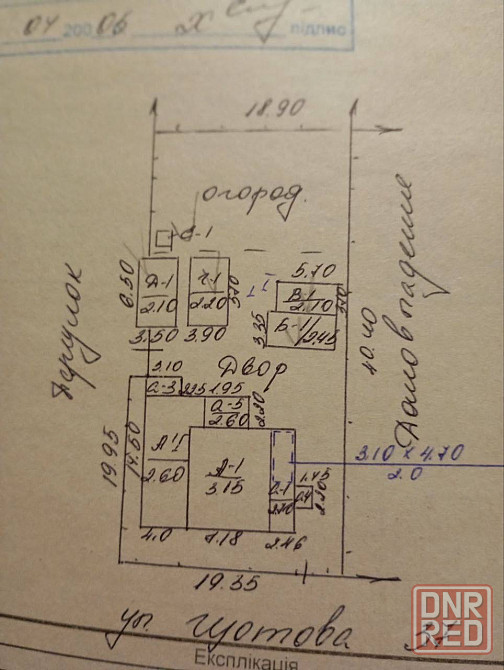 04 2006
підпис
18.90
огород.
6.50
Д-1
2.10
3.50
Г-1
2.20
3.90
5.70
В-1
2.10
3.35
Б-1
2.45
Переулок
Двор
Домовладение
40.40
3.10
а-3
2.35
1.95
а-5
2.60
2.20
19.95
14.50
А'I
2.60
А-1
3.15
а-1
2.20
3.10 x 4.70
2.0
1.45
2.20
4.0
7.18
2.46
19.35
ул. Чистова
Експлікація
DNR
RED